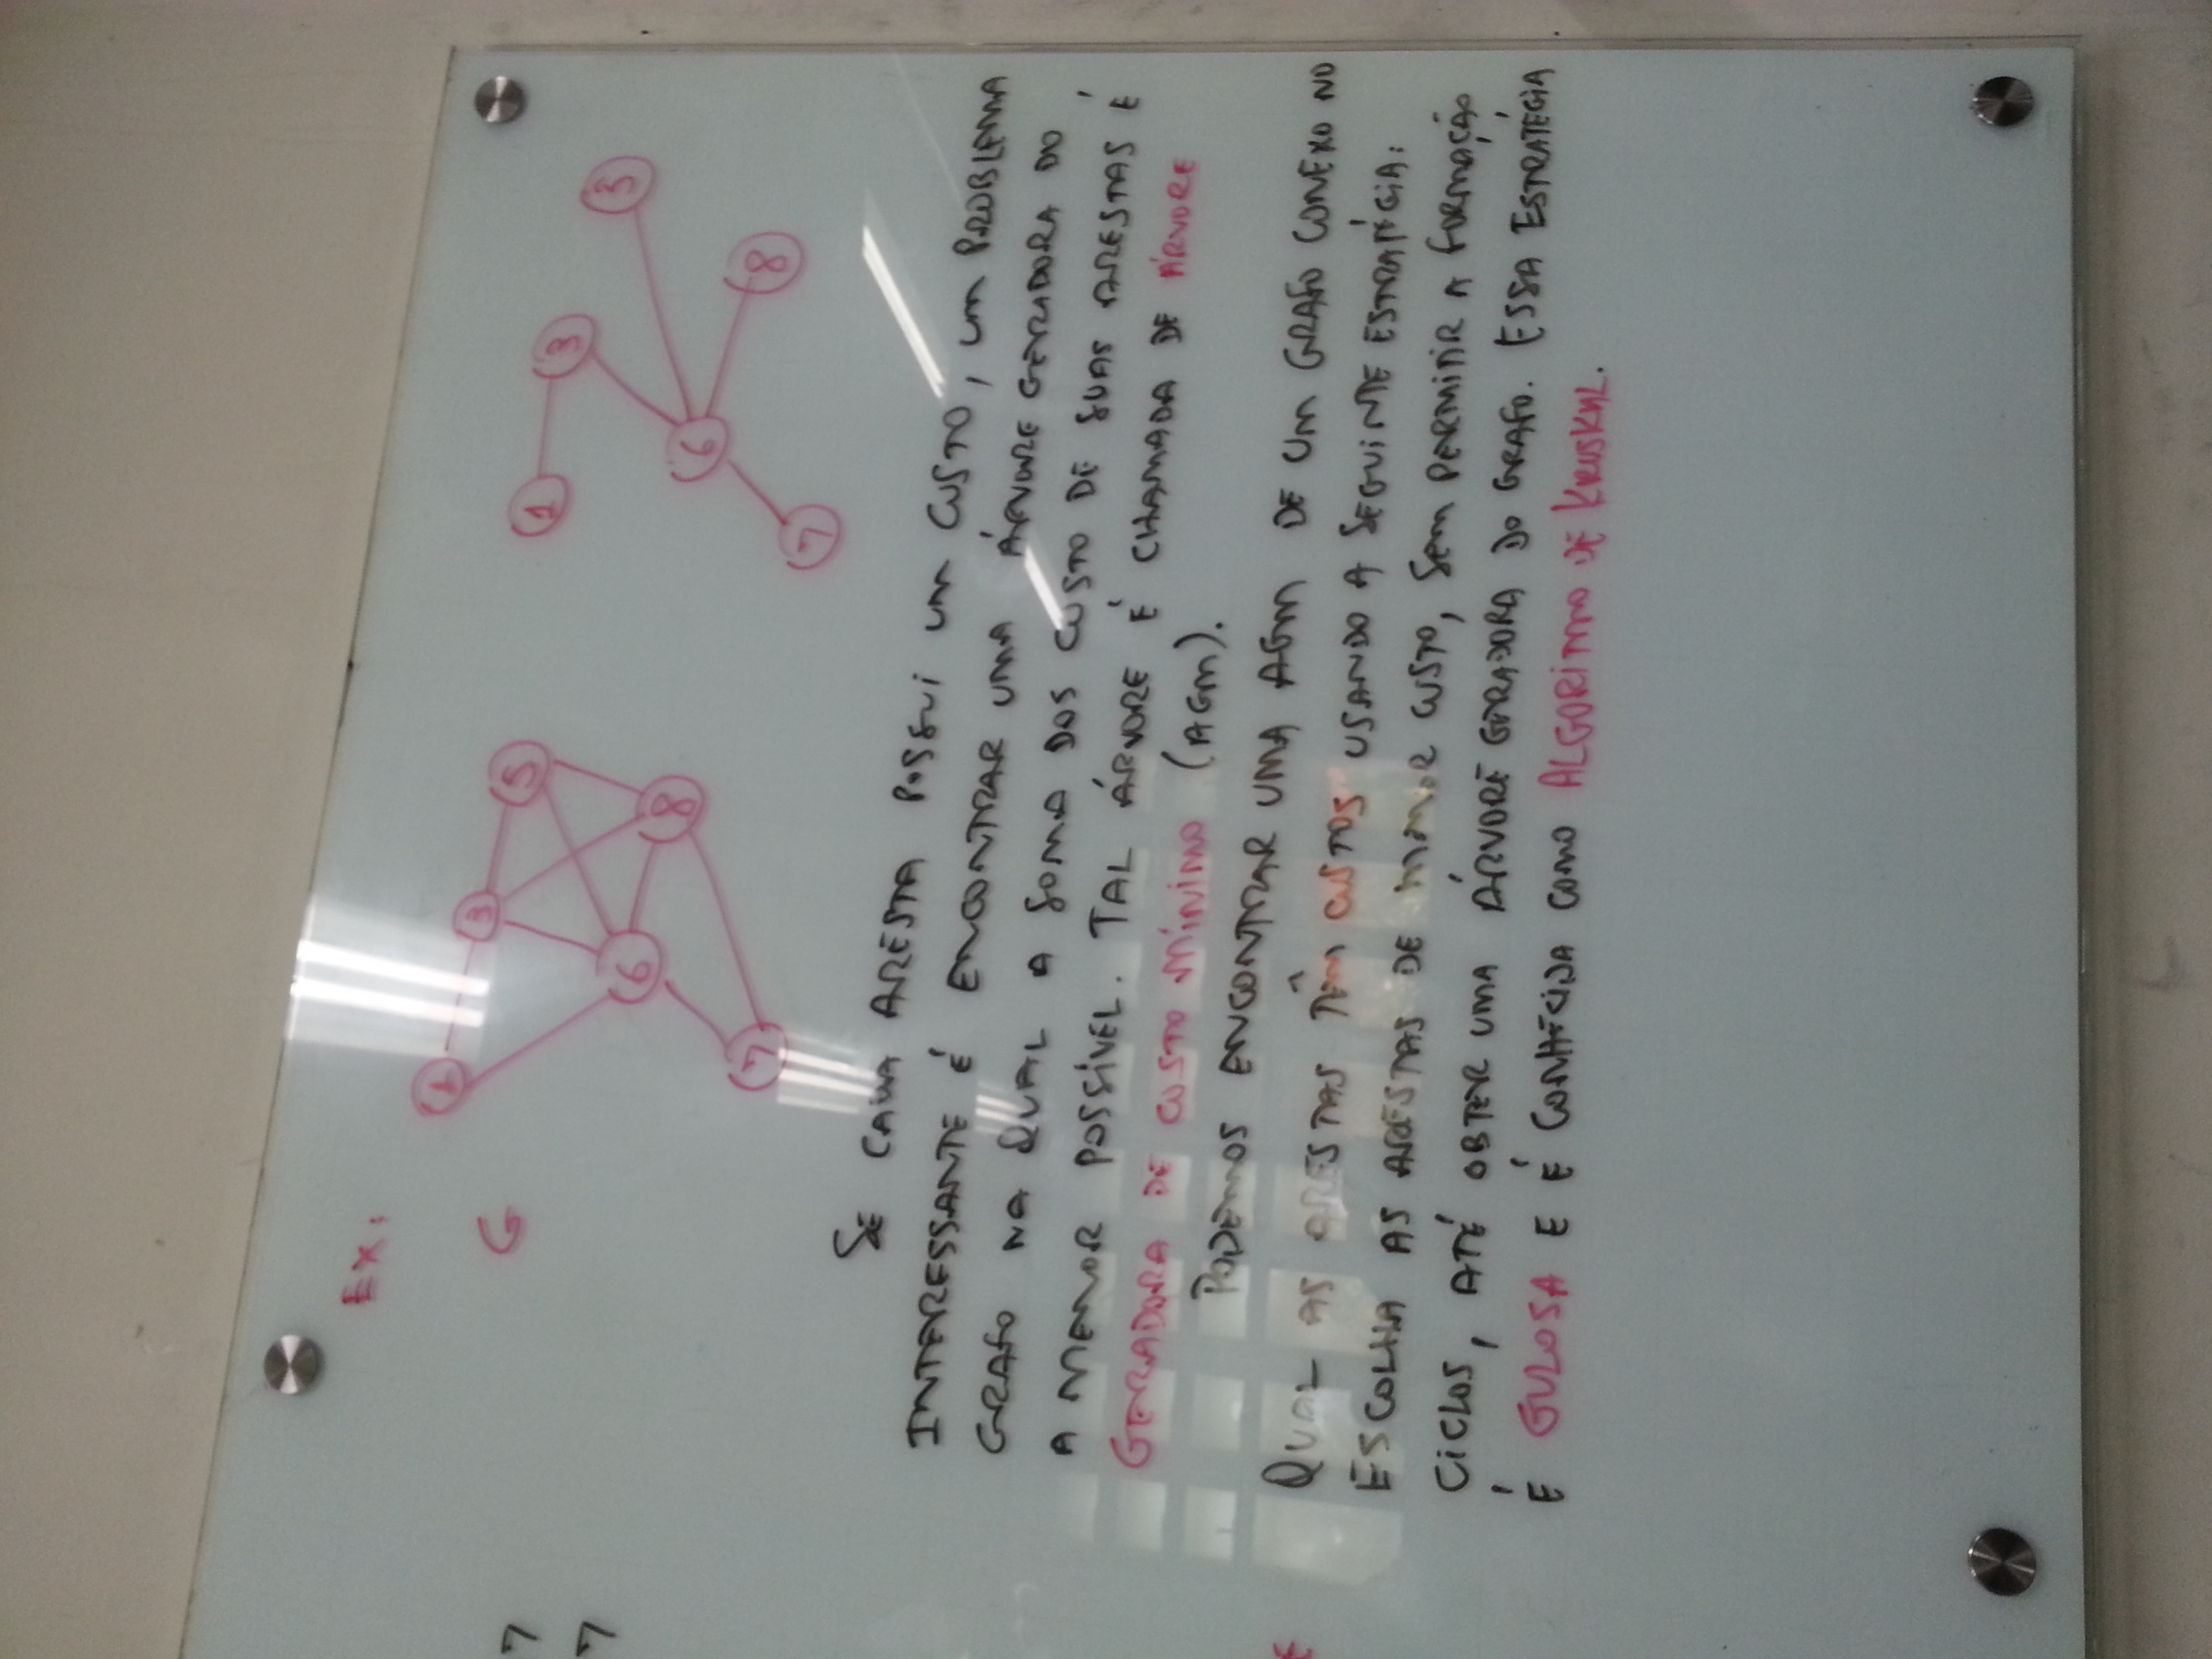 EX:
G
1 3 5
6 8
7
1 3 5
6 8
7
7
7
SE CADA ARESTA POSSUI UM CUSTO, UM PROBLEMA
INTERESSANTE É ENCONTRAR UMA ÁRVORE GERADORA DO
GRAFO NA QUAL A SOMA DOS CUSTO DE SUAS ARESTAS É
A MENOR POSSÍVEL. TAL ÁRVORE É CHAMADA DE ÁRVORE
GERADORA DE CUSTO MÍNIMO (AGM).
PODEMOS ENCONTRAR UMA AGM DE UM GRAFO CONEXO NO
QUAL AS ARESTAS TÊM CUSTOS USANDO A SEGUINTE ESTRATÉGIA:
ESCOLHA AS ARESTAS DE MENOR CUSTO, SEM PERMITIR A FORMAÇÃO
CICLOS, ATÉ OBTER UMA ÁRVORE GERADORA DO GRAFO. ESSA ESTRATÉGIA
É GULOSA E É CONHECIDA COMO ALGORITMO DE KRUSKAL.
E